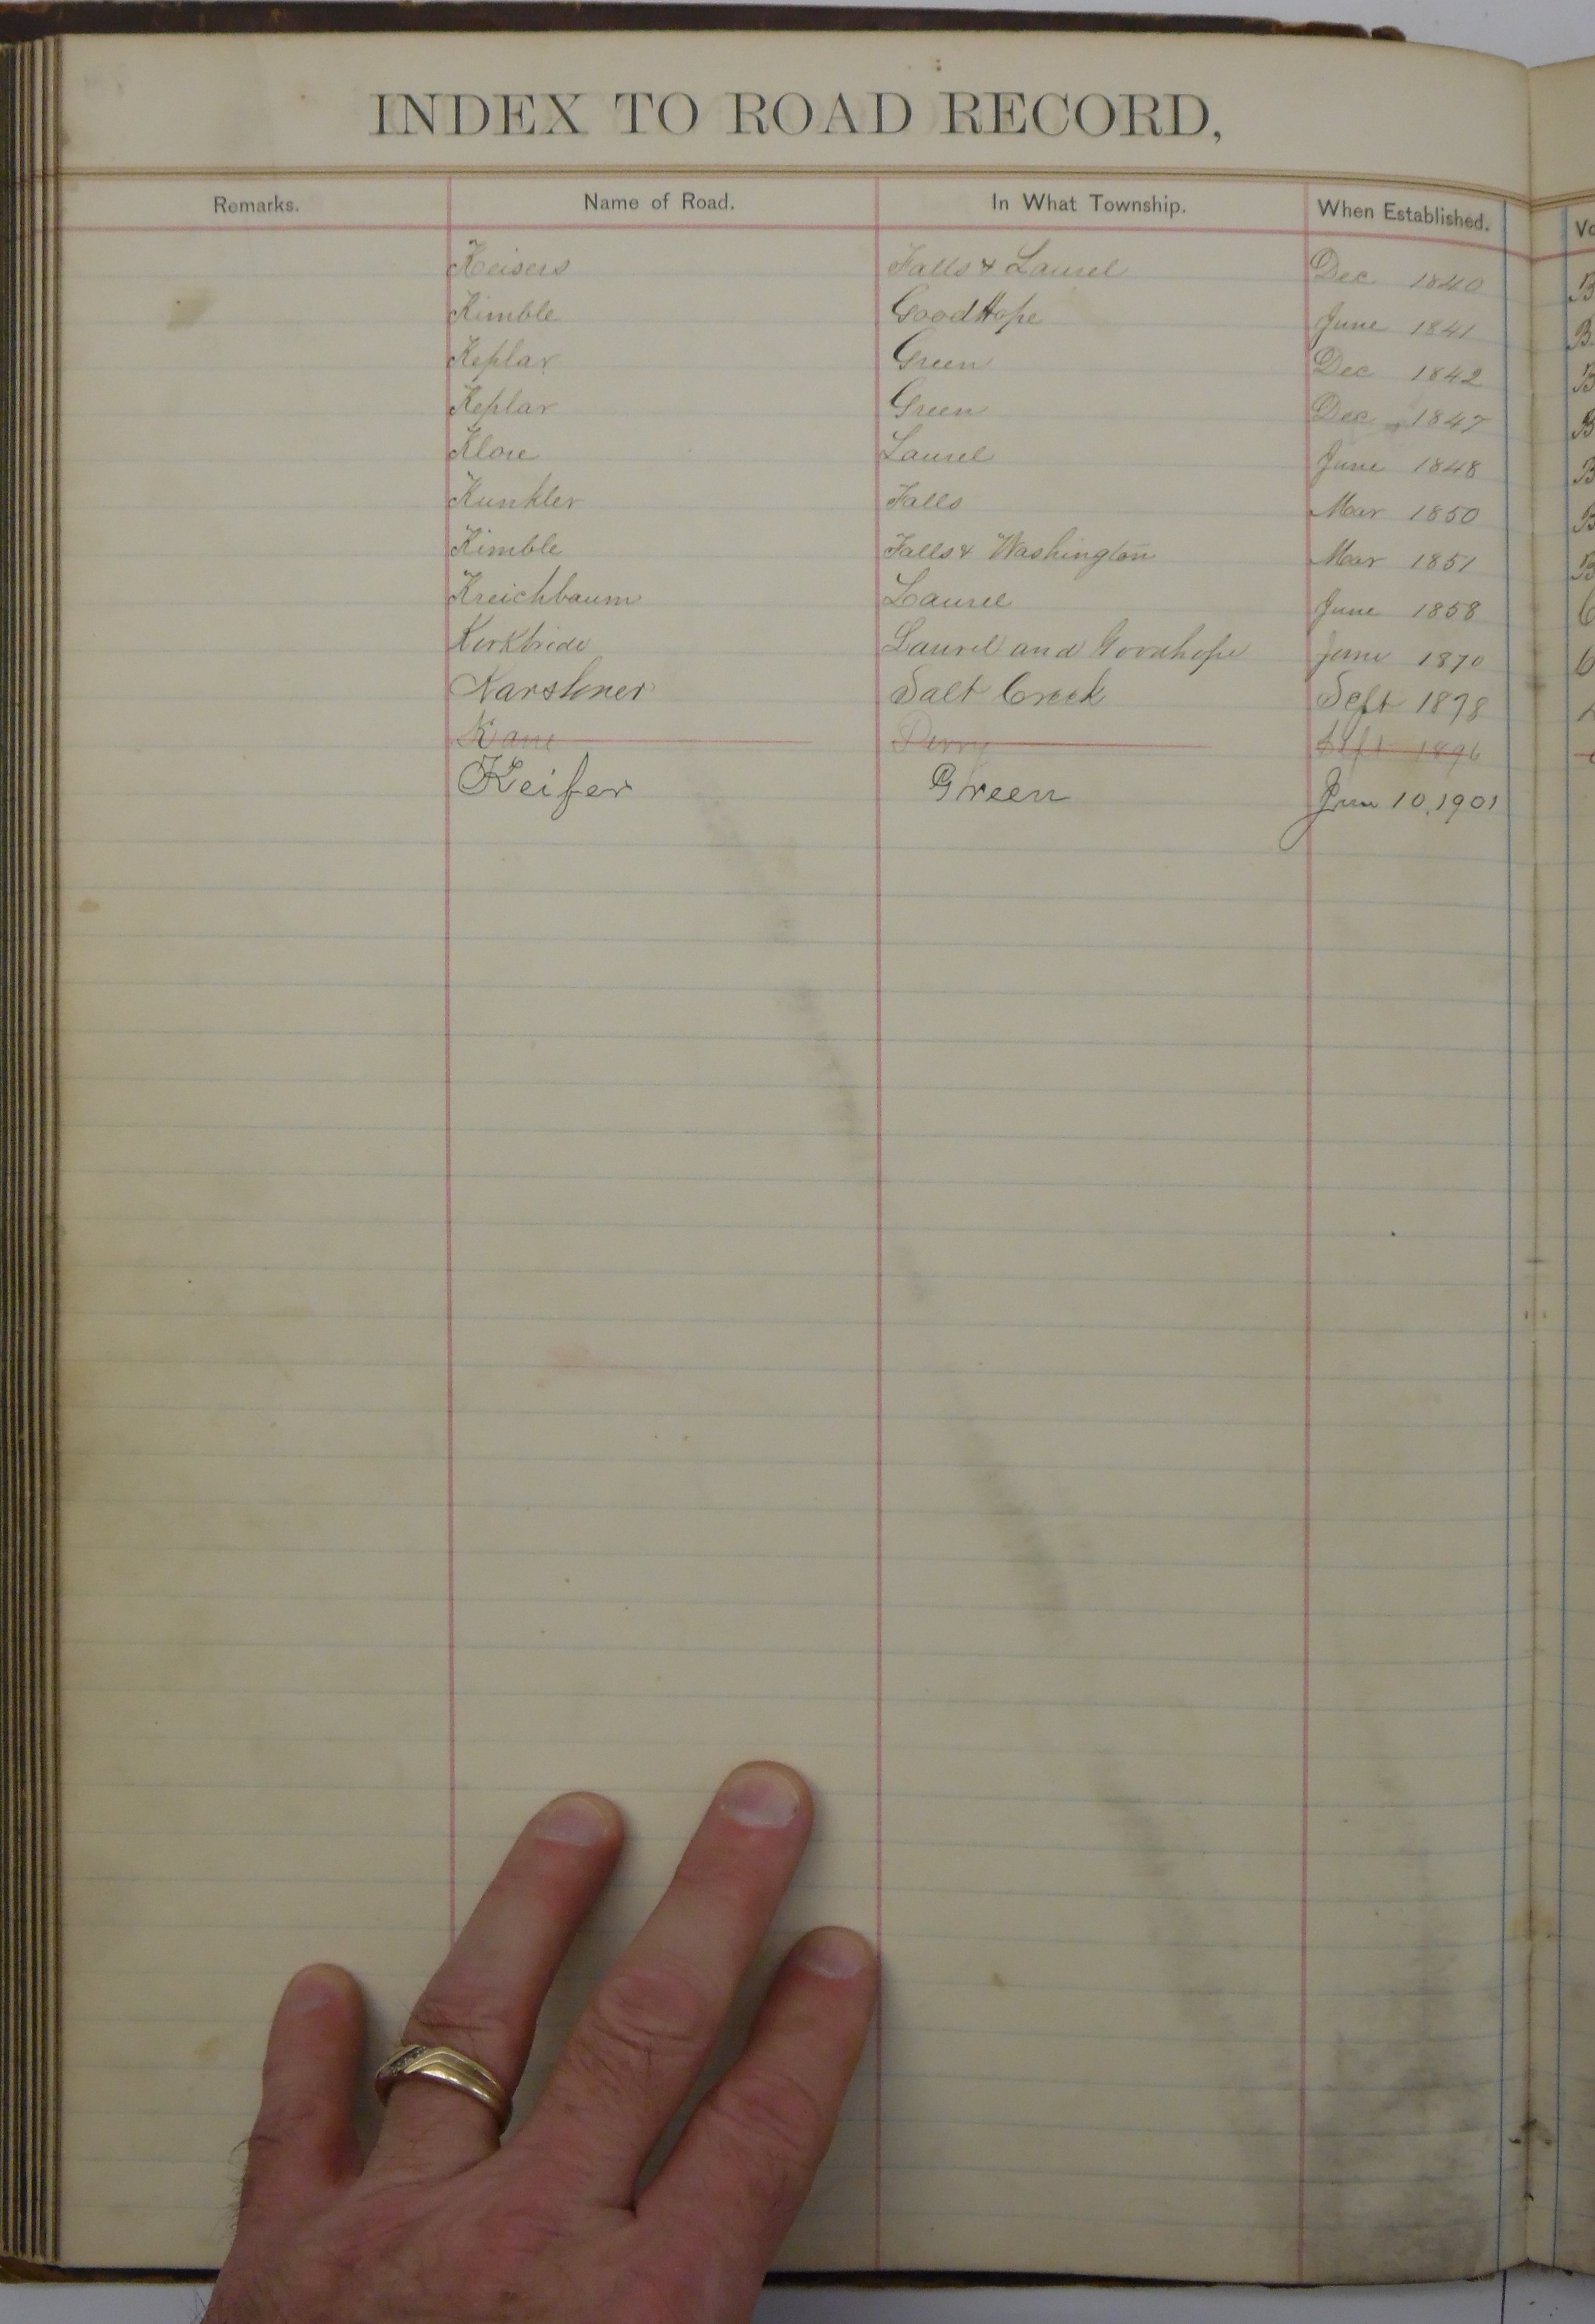 INDEX TO ROAD RECORD,
Remarks. Name of Road. In What Township. When Established. Vo
Keisers Falls & Laurel Dec 1840 B
Kimble Good Hope June 1841 B
Keplar Green Dec 1842 B
Keplar Green Dec 1847 B
Klore Laurel June 1848 B
Kunkler Falls Mar 1850 B
Kimble Falls & Washington Mar 1851 B
Kreichbaum Laurel June 1858
Kirkbride Laurel and Goodhope June 1870
Karshner Salt Creek Sept 1878
Kane Perry Sept 1896
Keifer Green Jun 10, 1901